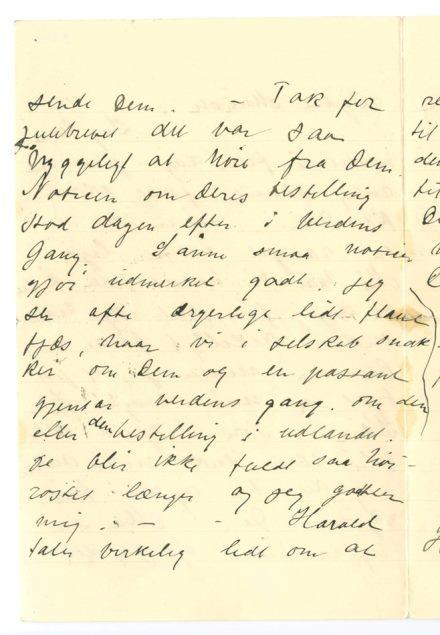 sende Dem. - Tak for
julebrevet det var saa
hyggeligt at höre fra Dem.
Notisen om Deres bestilling
stod dagen efter i Verdens
Gang. Sånne smaa notiser
gjör udmerket godt. Jeg
ser ofte ærgerlige lidt flaue
fjæs, naar vi i selskab snak-
ker om Dem og en passant
gjentar Verdens gang. om den
eller den bestilling i udlandet.
De blir ikke fuldt saa höi-
röstet længer og jeg gotter
mig. - - Harald
taler virkelig lidt om at